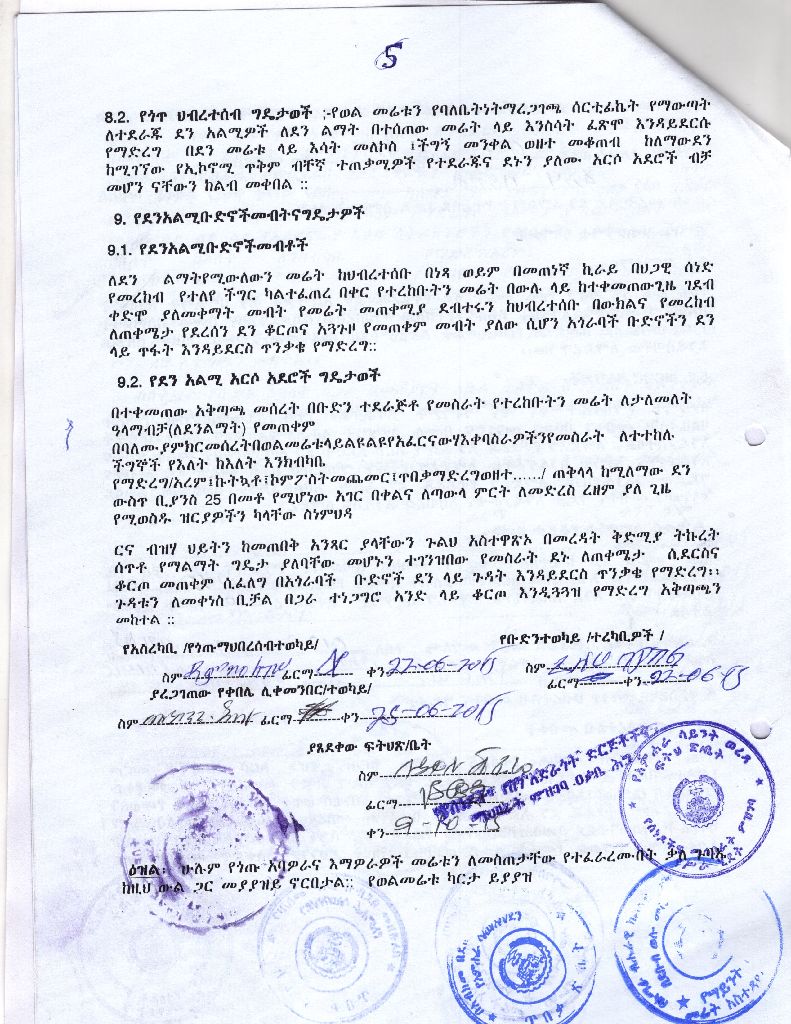 5
8.2. የጎጥ ህብረተሰብ ግዴታወች ;-የወል መሬቱን የባለቤትነትማረጋገጫ ሰርቲፊኬት የማውጣት
ለተደራጁ ደን አልሚዎች ለደን ልማት በተሰጠው መሬት ላይ እንስሳት ፈጽሞ እንዳይደርሱ
የማድረግ በደን መሬቱ ላይ እሳት መለኮስ ፤ችግኝ መንቀል ወዘተ መቆጠብ ከለማውደን
ከሚገኘው የኢኮኖሚ ጥቅም ብቸኛ ተጠቃሚዎች የተደራጁና ደኑን ያለሙ አርሶ አደሮች ብቻ
መሆን ናቸውን ከልብ መቀበል ::
9. የደንአልሚቡድኖችመብትናግዴታዎች
9.1. የደንአልሚቡድኖችመብቶች
ለደን ልማትየሚውለውን መሬት ከህብረተሰቡ በነጻ ወይም በመጠነኛ ኪራይ በህጋዊ ሰነድ
የመረከብ የተለየ ችግር ካልተፈጠረ በቀር የተረከቡትን መሬት በውሉ ላይ ከተቀመጠውጊዜ ገደብ
ቀድሞ ያለመቀማት መብት የመሬት መጠቀሚያ ደብተሩን ከህብረተሰቡ በውክልና የመረከብ
ለጠቀሜታ የደረሰን ደን ቆርጦና አጓጉዞ የመጠቀም መብት ያለው ሲሆን አጎራባች ቡድኖችን ደን
ላይ ጥፋት እንዳይደርስ ጥንቃቄ የማድረግ::
9.2. የደን አልሚ አርሶ አደሮች ግዴታወች
በተቀመጠው አቅጣጫ መሰረት በቡድን ተደራጅቶ የመስራት የተረከቡትን መሬት ለታለመለት
ዓላማብቻ(ለደንልማት) የመጠቀም
በባለሙያምክርመሰረትበወልመሬቱላይልዩልዩየአፈርናውሃእቀባስራዎችንየመስራት ለተተከሉ
ችግኞች የእለት ከእለት እንክብካቤ
የማድረግ/አረም፤ኩትኳቶ፤ኮምፖስትመጨመር፤ጥበቃማድረግወዘተ....../ ጠቅላላ ከሚለማው ደን
ውስጥ ቢያንስ 25 በመቶ የሚሆነው አገር በቀልና ለጣውላ ምርት ለመድረስ ረዘም ያለ ጊዜ
የሚወስዱ ዝርያዎችን ካላቸው ስነምህዳ
ርና ብዝሃ ህይትን ከመጠበቅ አንጻር ያላቸውን ጉልህ አስተዋጽኦ በመረዳት ቅድሚያ ትኩረት
ሰጥቶ የማልማት ግዴታ ያለባቸው መሆኑን ተገንዝበው የመስራት ደኑ ለጠቀሜታ ሲደርስና
ቆርጦ መጠቀም ሲፈለግ በአጎራባች ቡድኖች ደን ላይ ጉዳት እንዳይደርስ ጥንቃቄ የማድረግ፡፡
ጉዳቱን ለመቀነስ ቢቻል በጋራ ተነጋግሮ አንድ ላይ ቆርጦ እንዲጓጓዝ የማድረግ አቅጣጫን
መከተል ::
የአስረካቢ /የጎጡማህበረሰብተወካይ/ የቡድንተወካይ /ተረካቢዎች /
ስም ፊርማ ቀን 22-06-2015 ስም
ያረጋገጠው የቀበሌ ሊቀመንበር/ተወካይ/ ፊርማ ቀን 22-06-15
ስም ፊርማ ቀን 25-06-2015
ያጸደቀው ፍትህጽ/ቤት
ስም
ፊርማ
ቀን 9-10-15
ዕዝል፡ ሁሉም የጎጡ አባዎራና እማዎራዎች መሬቱን ለመስጠታቸው የተፈራረሙበት ቃለ ጉባኤ
ከዚህ ውል ጋር መያያዝይ ኖርበታል:: የወልመሬቱ ካርታ ይያያዝ